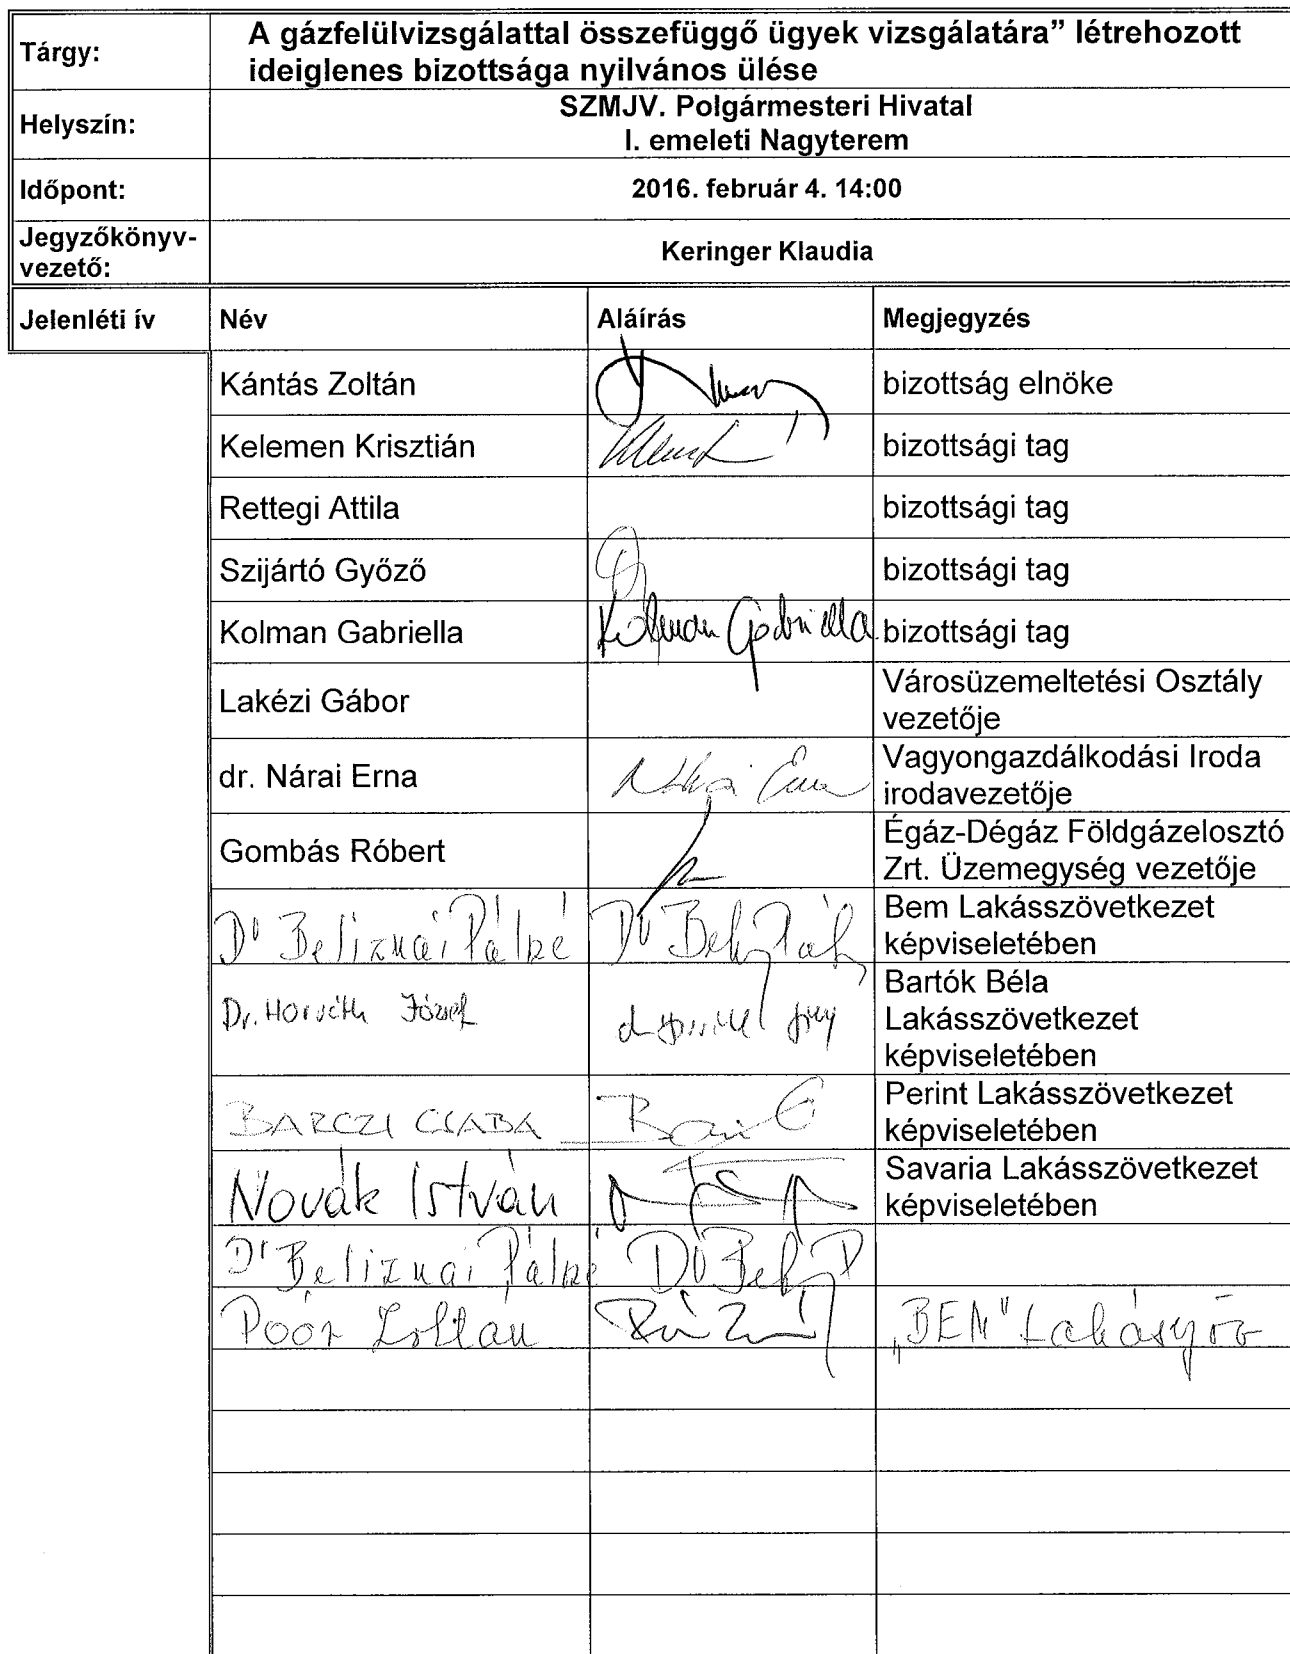 Tárgy:
A gázfelülvizsgálattal összefüggő ügyek vizsgálatára” létrehozott
ideiglenes bizottsága nyilvános ülése
Helyszín:
SZMJV. Polgármesteri Hivatal
I. emeleti Nagyterem
Időpont:
2016. február 4. 14:00
Jegyzőkönyv-
vezető:
Keringer Klaudia
Jelenléti ív Név Aláírás Megjegyzés
Kántás Zoltán bizottság elnöke
Kelemen Krisztián bizottsági tag
Rettegi Attila bizottsági tag
Szijártó Győző bizottsági tag
Kolman Gabriella Kolman Gabriella bizottsági tag
Lakézi Gábor
Városüzemeltetési Osztály
vezetője
dr. Nárai Erna Nárai Erna
Vagyongazdálkodási Iroda
irodavezetője
Gombás Róbert
Égáz-Dégáz Földgázelosztó
Zrt. Üzemegység vezetője
Dr Beliznai Pálné
Bem Lakásszövetkezet
képviseletében
Dr. Horváth József
Bartók Béla
Lakásszövetkezet
képviseletében
BARCZI CSABA
Perint Lakásszövetkezet
képviseletében
Novák István
Savaria Lakásszövetkezet
képviseletében
Dr Beliznai Pálné
Poór Zoltán „BEM"